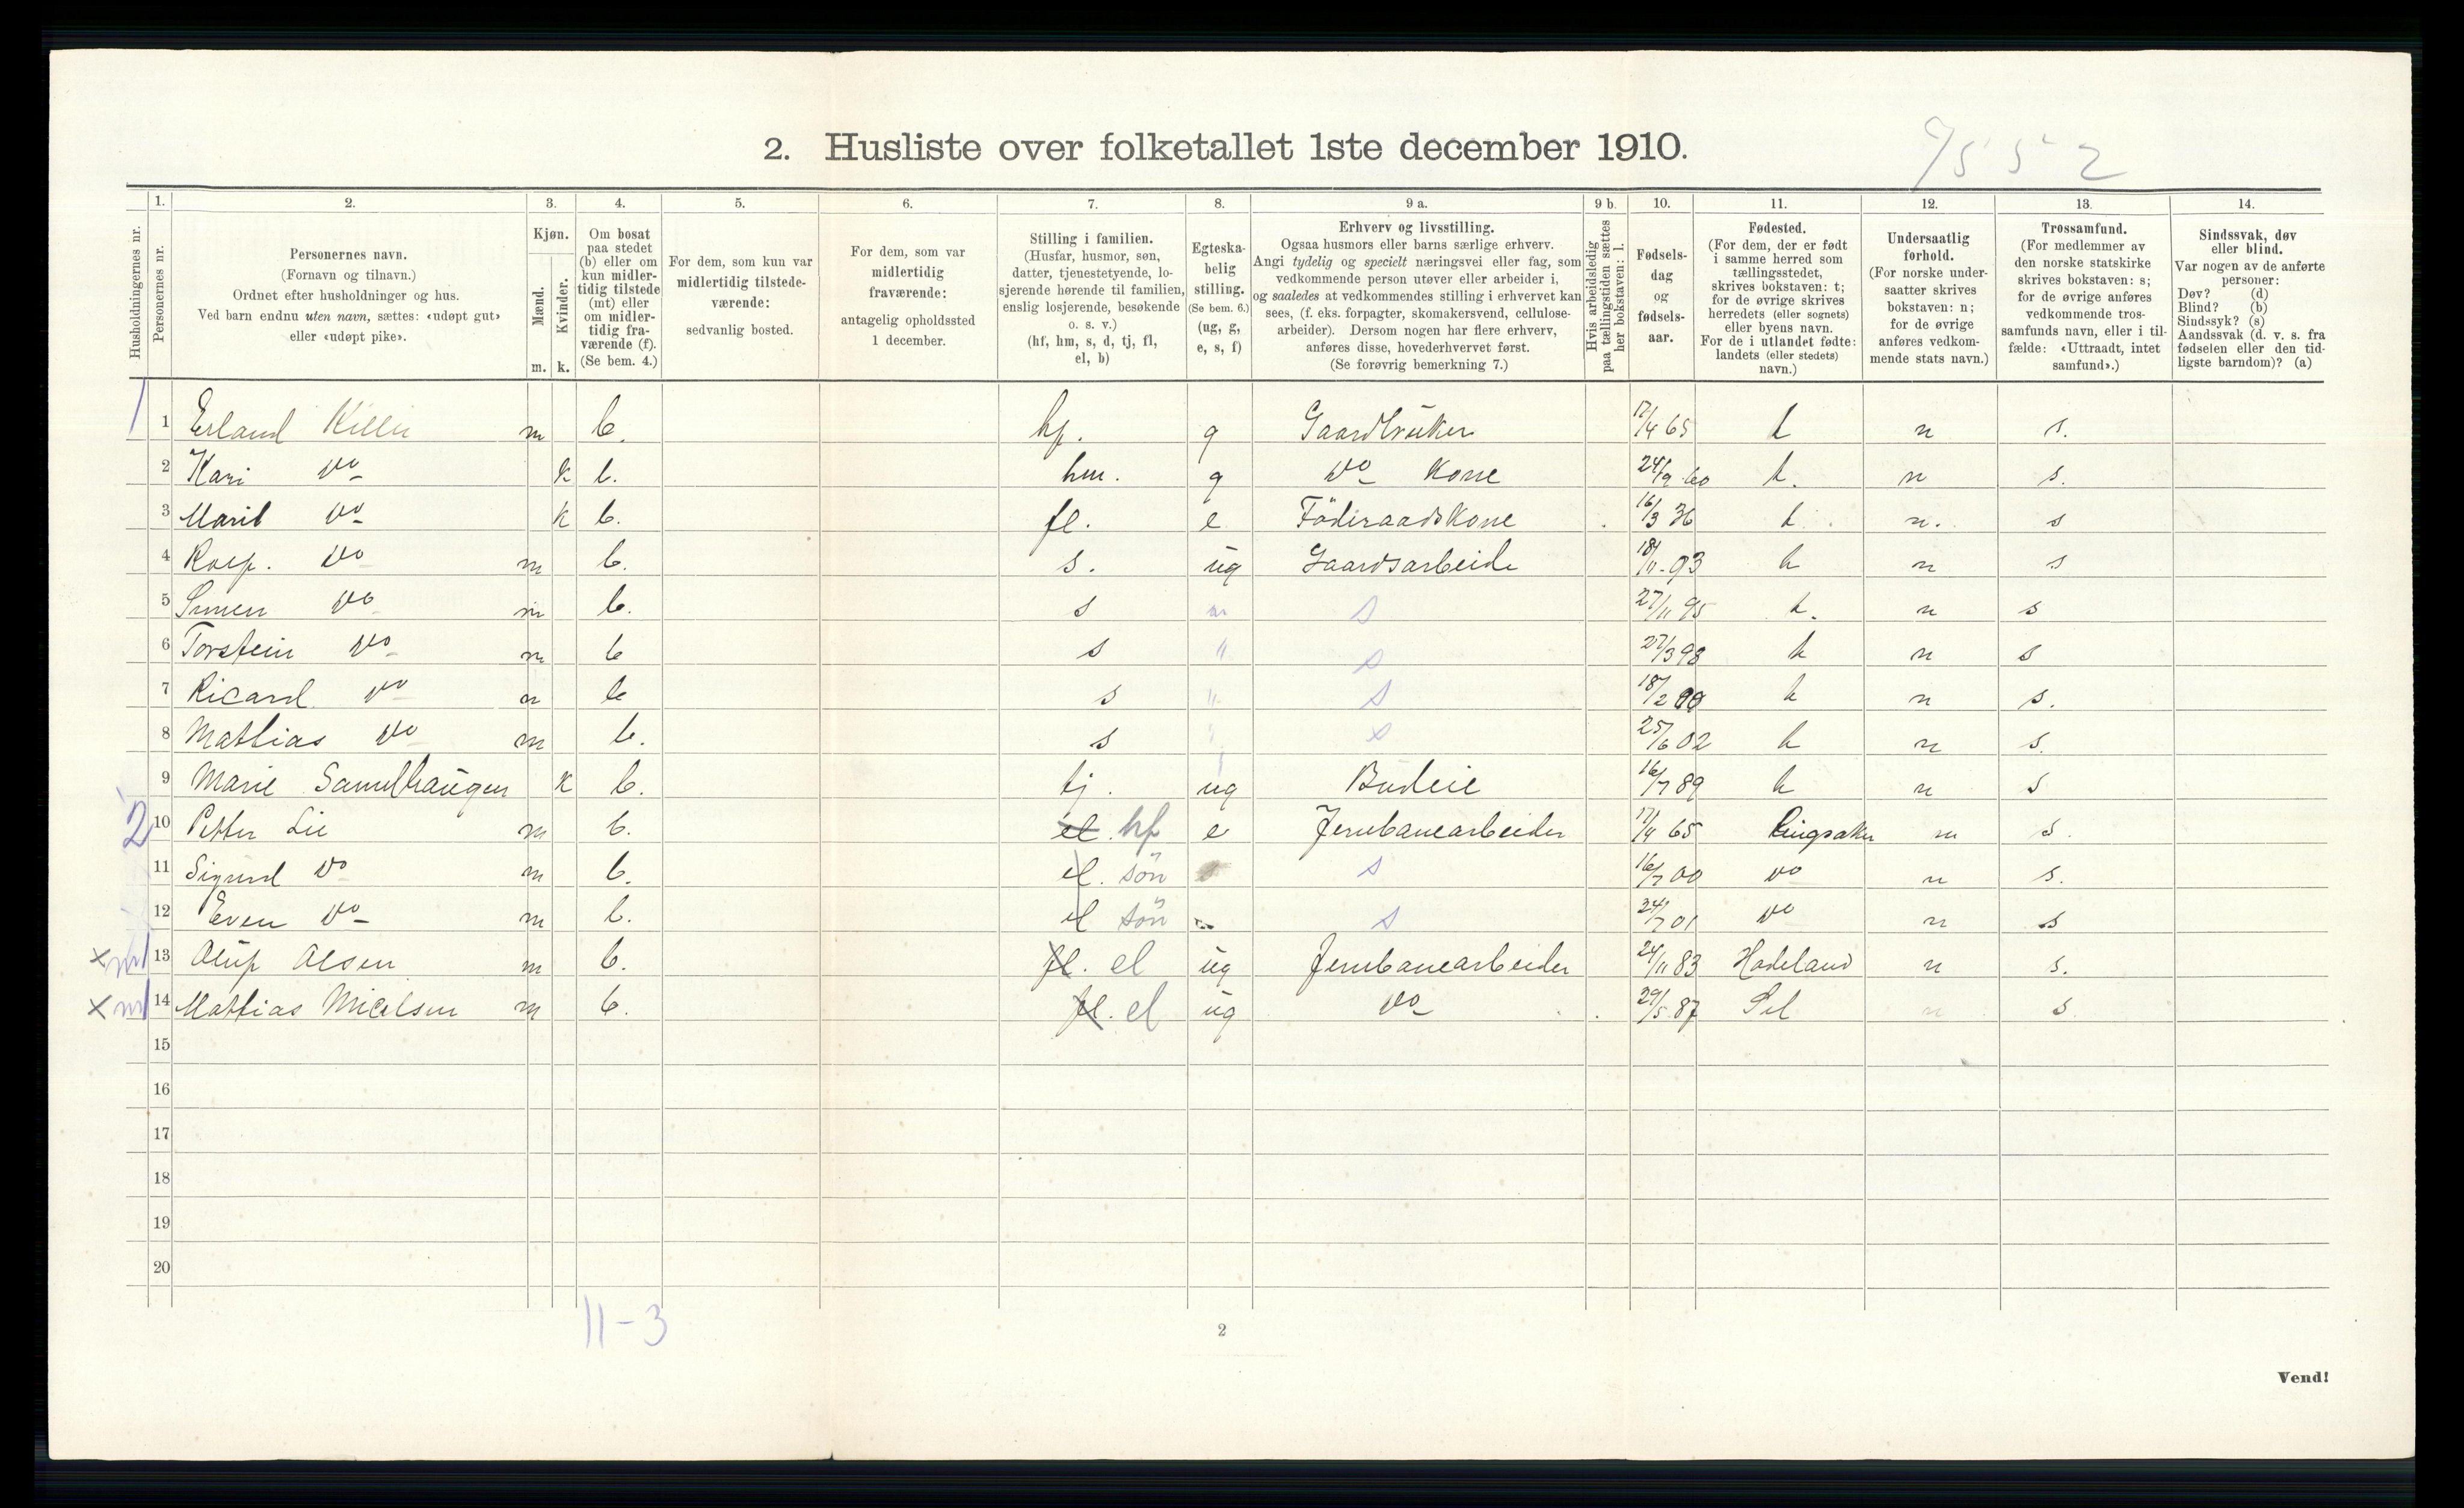 2. Husliste over folketallet 1ste december 1910.
7552
Husholdningernes nr.
1.
Personernes nr.
2.
Personernes navn.
(Fornavn og tilnavn.)
Ordnet efter husholdninger og hus.
Ved barn endnu uten navn, sættes: «udøpt gut»
eller «udøpt pike».
3.
Kjøn.
Mænd.
Kvinder.
m. k.
4.
Om bosat
paa stedet
(b) eller om
kun midler-
tidig tilstede
(mt) eller
om midler-
tidig fra-
værende (f).
(Se bem. 4.)
5.
For dem, som kun var
midlertidig tilstede-
værende:
sedvanlig bosted.
6.
For dem, som var
midlertidig
fraværende:
antagelig opholdssted
1 december.
7.
Stilling i familien.
(Husfar, husmor, søn,
datter, tjenestetyende, lo-
sjerende hørende til familien,
enslig losjerende, besøkende
o. s. v.)
(hf, hm, s, d, tj, fl,
el, b)
8.
Egteska-
belig
stilling.
(Se bem. 6.)
(ug, g,
e, s, f)
9 a.
Erhverv og livsstilling.
Ogsaa husmors eller barns særlige erhverv.
Angi tydelig og specielt næringsvei eller fag, som
vedkommende person utøver eller arbeider i,
og saaledes at vedkommendes stilling i erhvervet kan
sees, (f. eks. forpagter, skomakersvend, cellulose-
arbeider). Dersom nogen har flere erhverv,
anføres disse, hovederhvervet først.
(Se forøvrig bemerkning 7.)
9 b.
Hvis arbeidsledig
paa tællingstiden sættes
her bokstaven: l.
10.
Fødsels-
dag
og
fødsels-
aar.
11.
Fødested.
(For dem, der er født
i samme herred som
tællingsstedet,
skrives bokstaven: t;
for de øvrige skrives
herredets (eller sognets)
eller byens navn.
For de i utlandet fødte:
landets (eller stedets)
navn.)
12.
Undersaatlig
forhold.
(For norske under-
saatter skrives
bokstaven: n;
for de øvrige
anføres vedkom-
mende stats navn.)
13.
Trossamfund.
(For medlemmer av
den norske statskirke
skrives bokstaven: s;
for de øvrige anføres
vedkommende tros-
samfunds navn, eller i til-
fælde: «Uttraadt, intet
samfund».)
14.
Sindssvak, døv
eller blind.
Var nogen av de anførte
personer:
Døv? (d)
Blind? (b)
Sindssyk? (s)
Aandssvak (d. v. s. fra
fødselen eller den tid-
ligste barndom)? (a)
1 1 Erland Killie m b. hf. g Gaardbruker 17/4 65 t n s.
2 Kari do k b. hm. g do Kone 24/9 60 t. n s.
3 Marit do k b. fl. e Föderaadskone 16/3 36 t. n. s
4 do m b. s. ug Gaardsarbeide 18/11-93 t n s
5 Simen do m b. s s 27/11 95 t. n s
6 Torstein do m b s " s 27/3 98 t n s
7 Ricard do m b s " s 18/2 t n s.
8 Mathias do m b. s s 25/6 02 t n s.
9 Marie k b. tj. ug Budeie 16/7 89 t n s
2 10 Petter Lie m b. el hf e Jernbanearbeider 17/4 65 Ringsaker n s.
11 Sigurd do m b. el. sön s 16/7 00 do n s.
12 Even do m b. el sön s 24/7 01 do n s
x 13 Oluf Olsen m b. fl. el ug Jernbanearbeider 24/11 83 Hadeland n s.
x 14 Mathias m b. fl. el ug do 29/5 87 Sel n s
15
16
17
18
19
20
11-3
2
Vend!